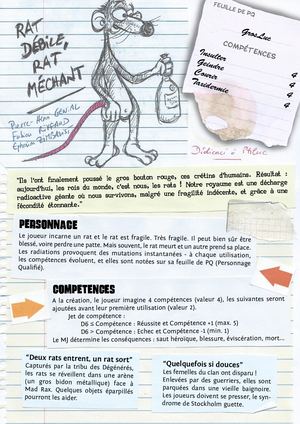 RAT
DÉBILE,
RAT
MÉCHANT
FEUILLE DE PQ
GrosLuc
COMPÉTENCES
Insulter 4
Geindre 4
Courer 4
Taxidermie 4
"Ils l'ont finalement poussé le gros bouton rouge, ces crétins d'humains. Résultat :
aujourd'hui, les rois du monde, c'est nous, les rats ! Notre royaume est une décharge
radioactive géante où nous survivons, malgré une fragilité indécente, et grâce à une
fécondité étonnante."
PERSONNAGE
Le joueur incarne un rat et le rat est fragile. Très fragile. Il peut bien sûr être
blessé, voire perdre une patte. Mais souvent, le rat meurt et un autre prend sa place.
Les radiations provoquent des mutations instantanées - à chaque utilisation,
les compétences évoluent, et elles sont notées sur sa feuille de PQ (Personnage
Qualifié).
COMPETENCES
A la création, le joueur imagine 4 compétences (valeur 4), les suivantes seront
ajoutées avant leur première utilisation (valeur 2).
Jet de compétence :
D6 ≤ Compétence : Réussite et Compétence +1 (max. 5)
D6 > Compétence : Echec et Compétence -1 (min. 1)
Le MJ détermine les conséquences : saut héroïque, blessure, éviscération, mort...
"Deux rats entrent, un rat sort"
Capturés par la tribu des Dégénérés,
les rats se réveillent dans une arène
(un gros bidon métallique) face à
Mad Rax. Quelques objets éparpillés
pourront les aider.
"Quelquefois si douces"
Les femelles du clan ont disparu !
Enlevées par des guerriers, elles sont
parquées dans une vieille baignoire.
Les joueurs doivent se presser, le syn-
drome de Stockholm guette.